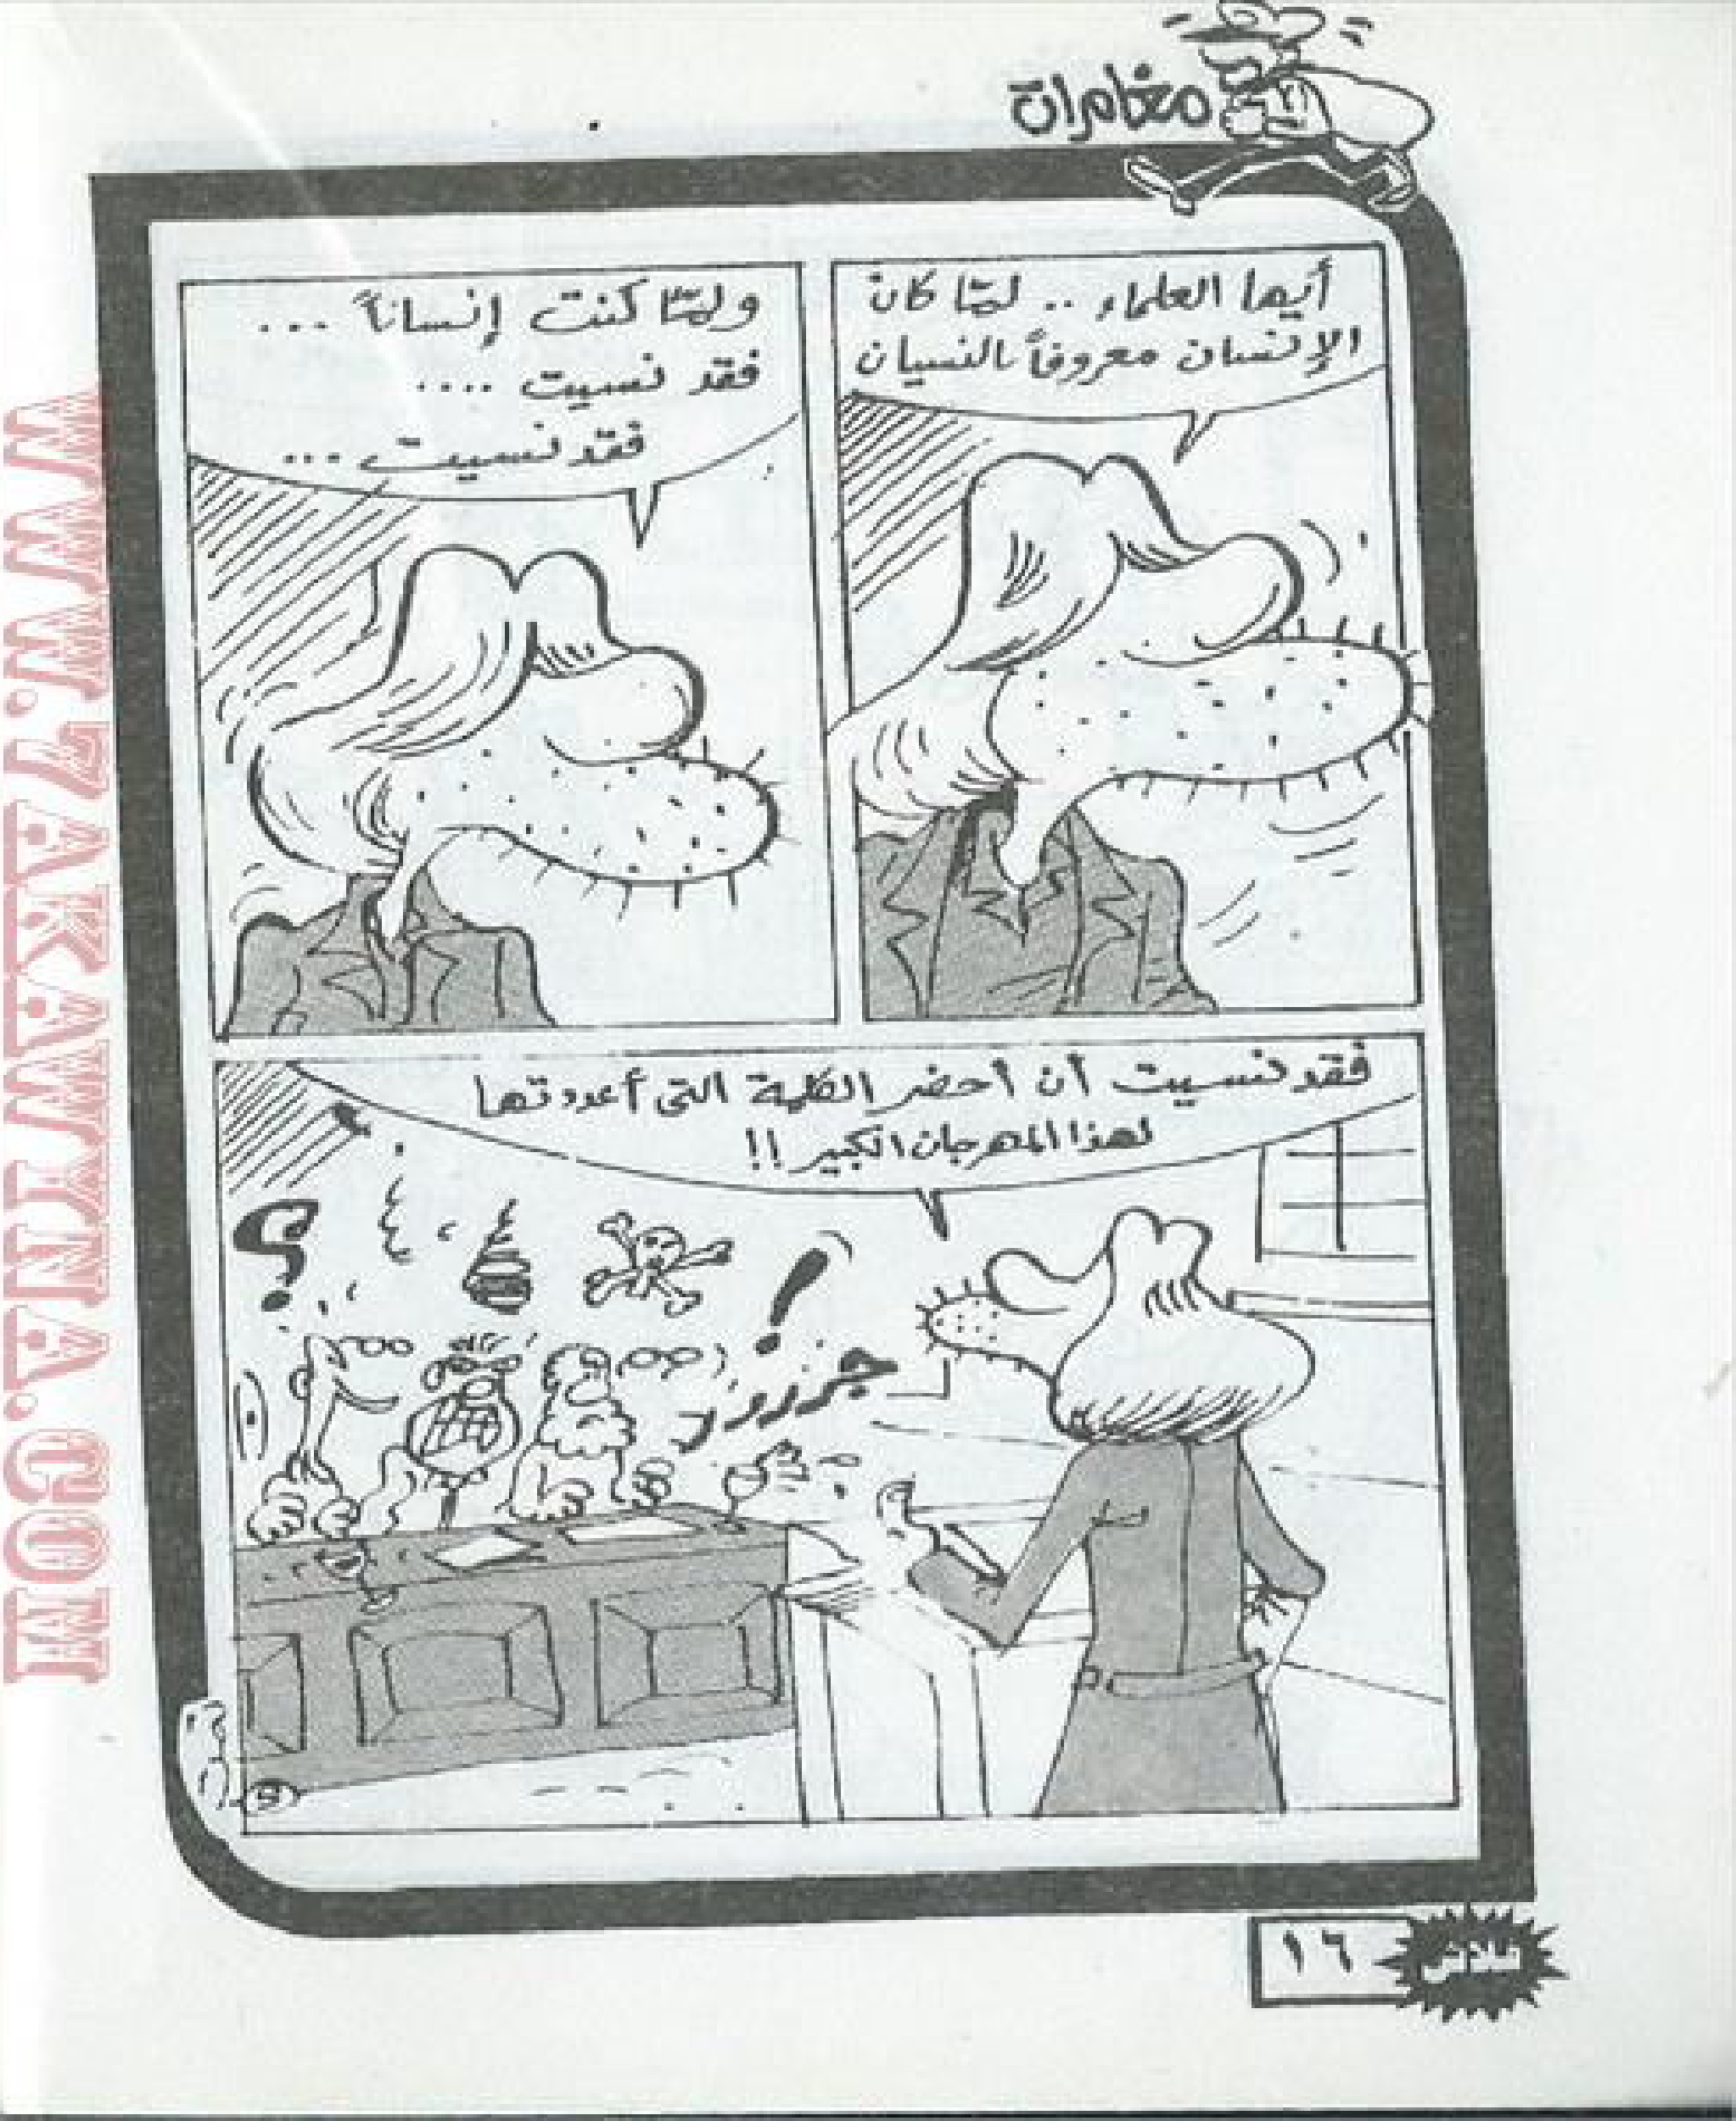 مغامرات
أيها العلماء .. لمّا كان
الإنسان معروفاً بالنسيان
ولمّا كنت إنساناً ...
فقد نسيت ....
فقد نسيت ...
فقد نسيت أن أحضر الكلمة التى أعددتها
لهذا المهرجان الكبير !!
؟
!
١٦
فلاش
WWW.7AKAWTINA.COM